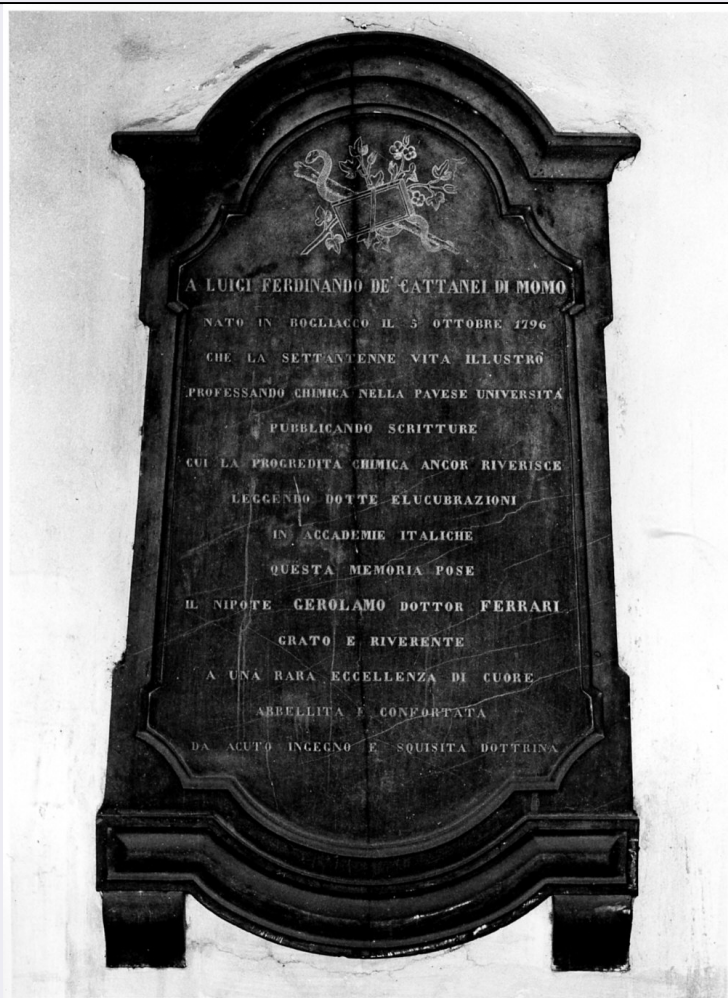 A LUIGI FERDINANDO DE' CATTANEI DI MOMO
NATO IN BOGLIACCO IL 5 OTTOBRE 1796
CHE LA SETTANTENNE VITA ILLUSTRÒ
PROFESSANDO CHIMICA NELLA PAVESE UNIVERSITÀ
PUBBLICANDO SCRITTURE
CUI LA PROGREDITA CHIMICA ANCOR RIVERISCE
LEGGENDO DOTTE ELUCUBRAZIONI
IN ACCADEMIE ITALICHE
QUESTA MEMORIA POSE
IL NIPOTE GEROLAMO DOTTOR FERRARI
GRATO E RIVERENTE
A UNA RARA ECCELLENZA DI CUORE
ABBELLITA E CONFORTATA
DA ACUTO INGEGNO E SQUISITA DOTTRINA